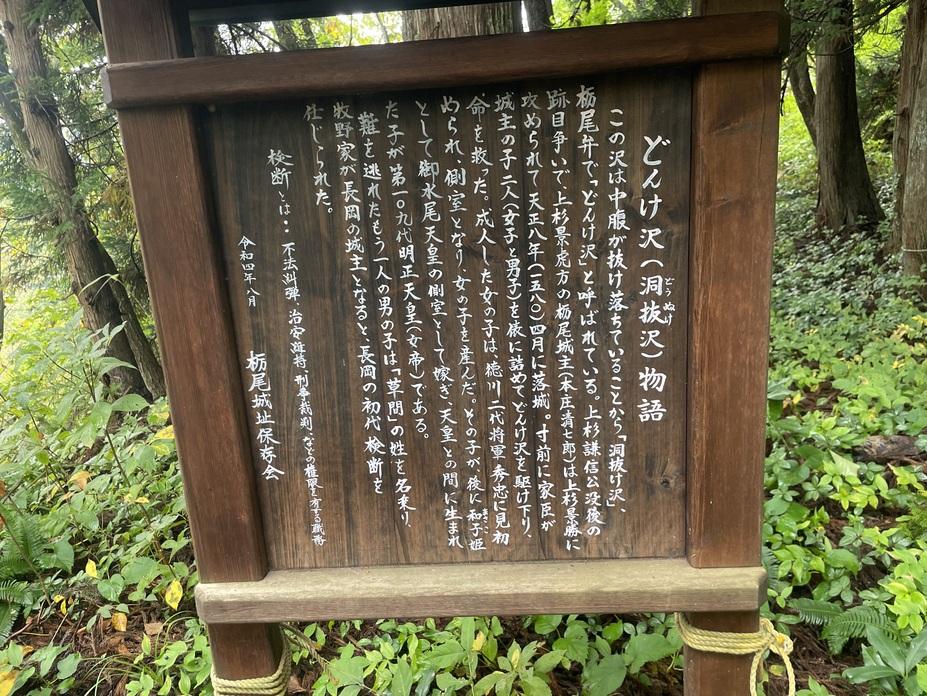 どんけ沢（洞抜沢）物語
どうぬけ
この沢は中腹が抜け落ちていることから「洞抜け沢」、
栃尾弁で「どんけ沢」と呼ばれている。上杉謙信公没後の
跡目争いで、上杉景虎方の栃尾城主（本庄清七郎）は上杉景勝に
攻められて天正八年（一五八〇）四月に落城。寸前に家臣が
城主の子二人（女子と男子）を俵に詰めてどんけ沢を駆け下り、
命を救った。成人した女の子は、徳川二代将軍秀忠に見初
められ、側室となり、女の子を産んだ。その子が、後に和子姫
まさこ
として御水尾天皇の側室として嫁ぎ、天皇との間に生まれ
た子が第一〇九代明正天皇（女帝）である。
難を逃れたもう一人の男の子は「草間」の姓を名乗り、
牧野家が長岡の城主となると長岡の初代検断を
仕じられた。
検断とは：不法糾弾、治安維持、刑事裁判、などの権限を有する職務
令和四年八月
栃尾城址保存会